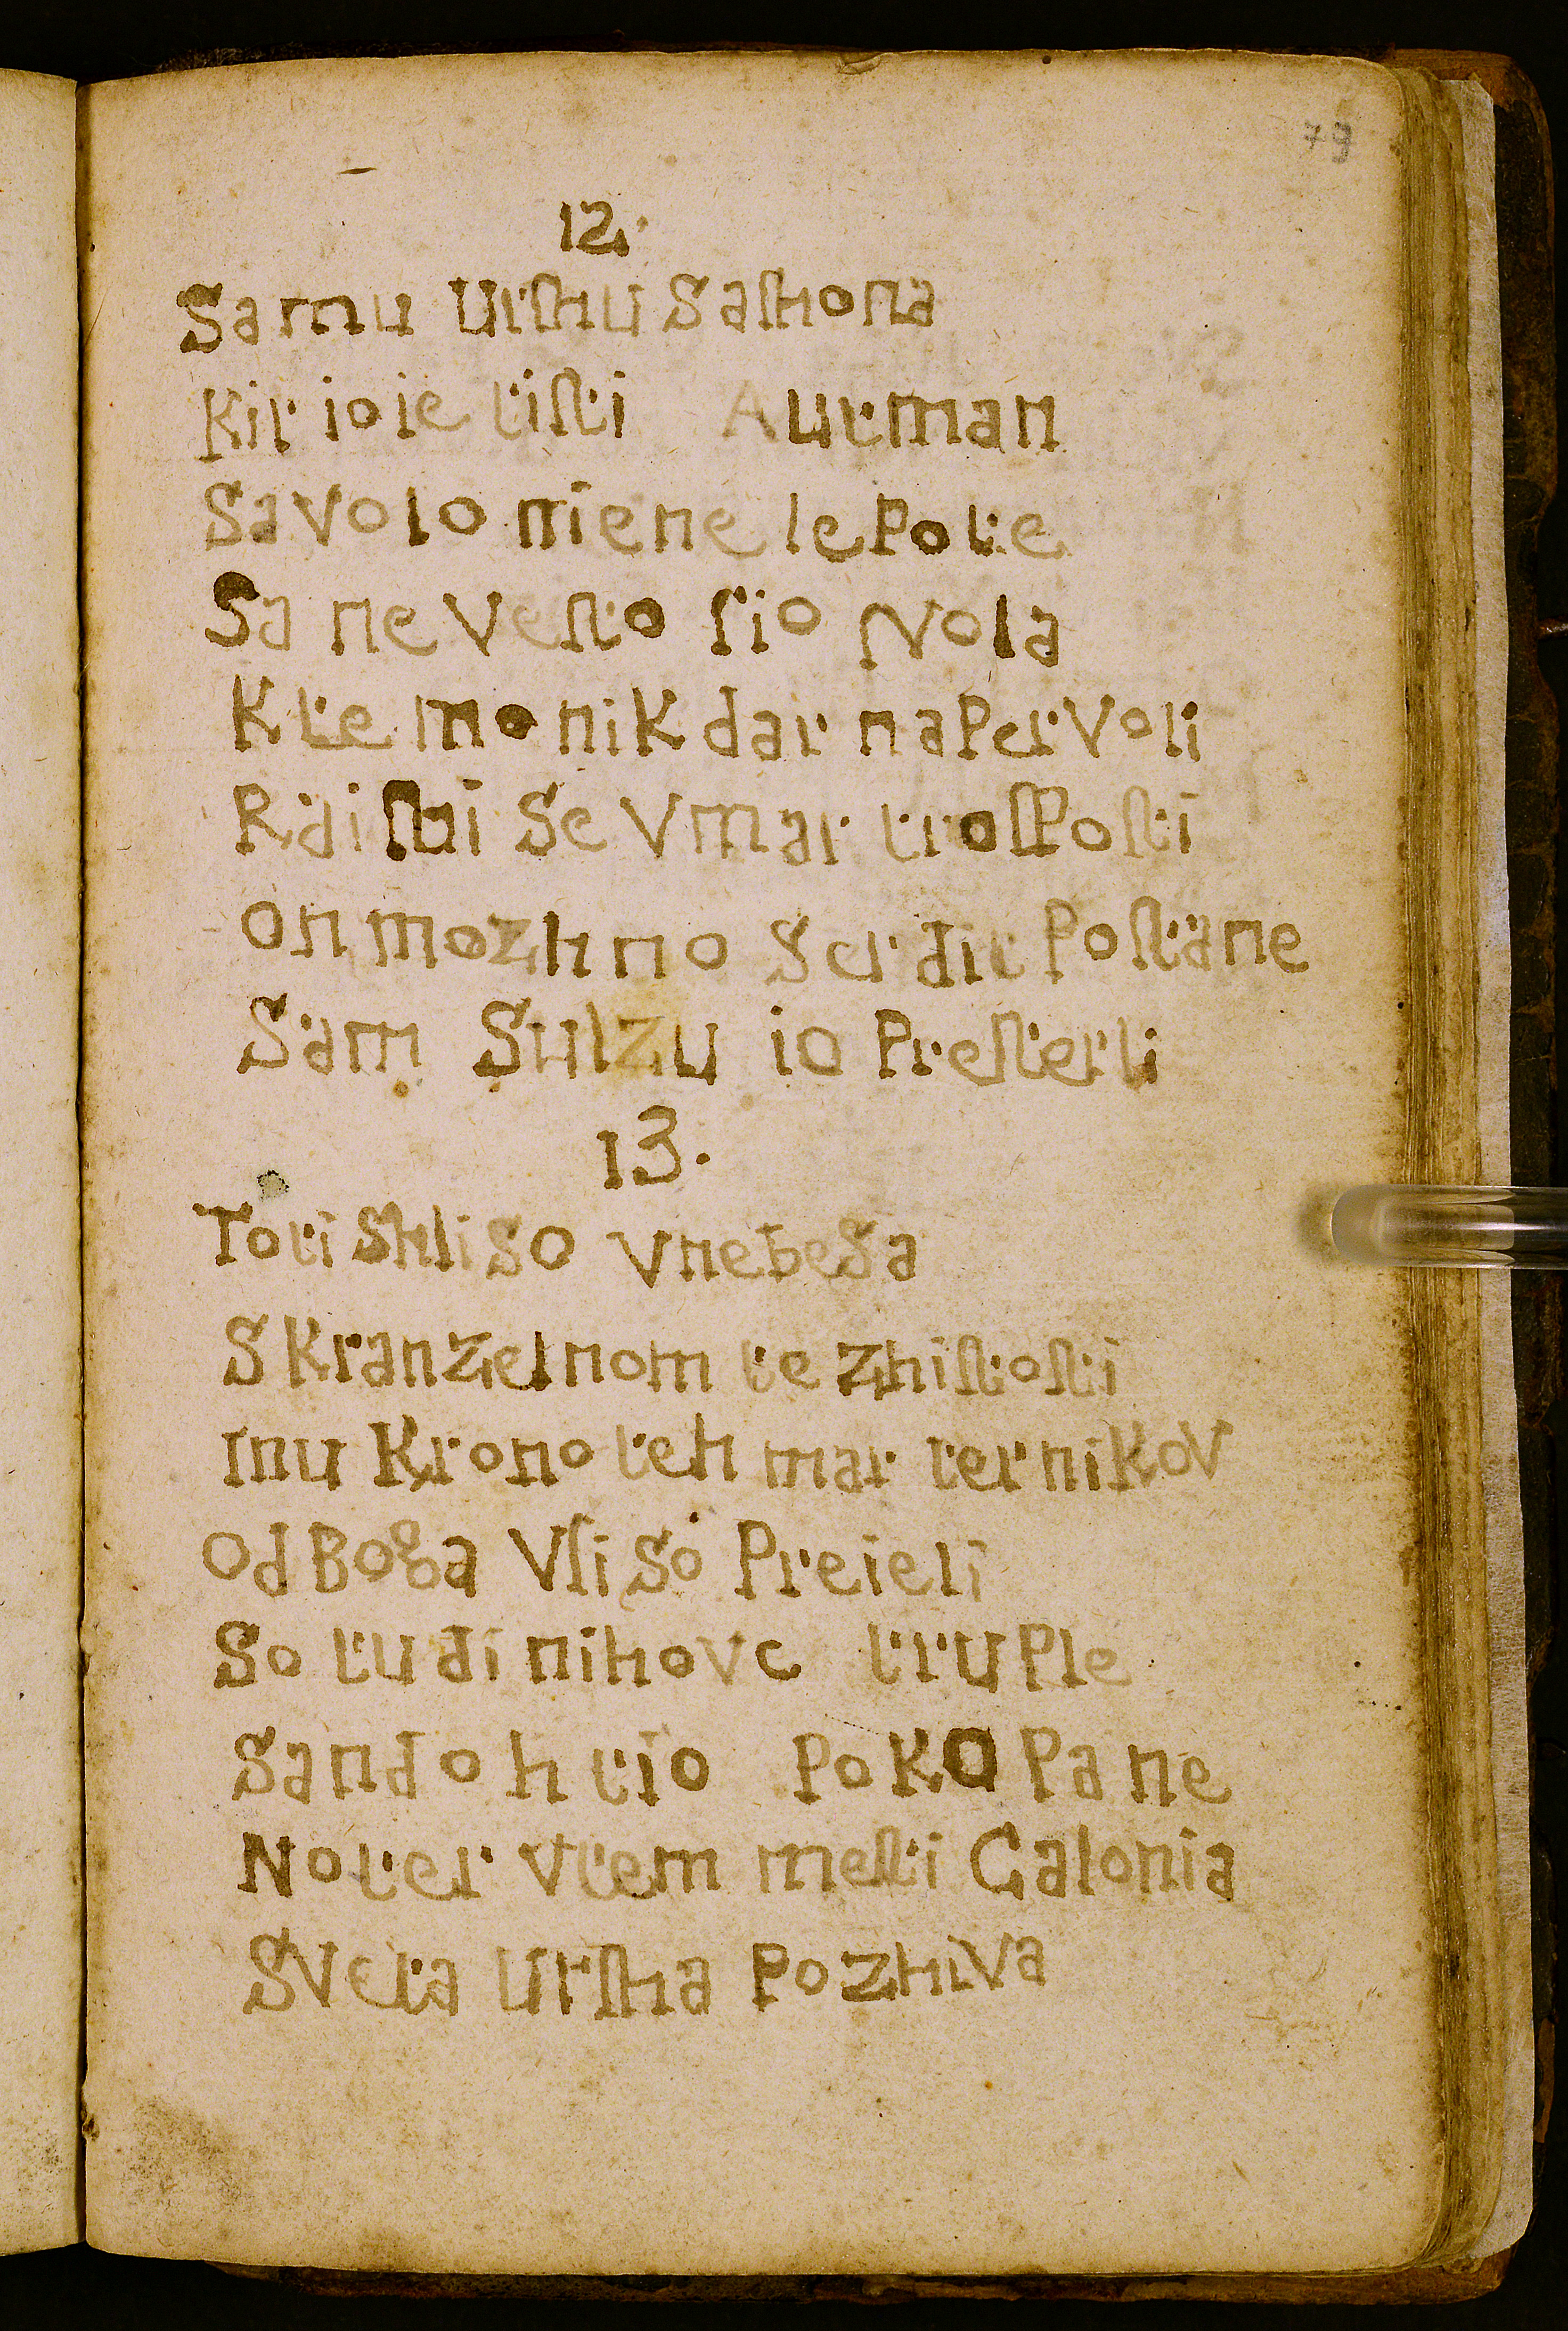 79
12.
Samu Urſhu Saſhona
Kir io ie tiſti Autman
Savolo niene lepote
Sa neveſto ſio Nola
K temo nikdar napervoli
Raiſhi Se Vmar troſſpoſti
On mozhno Serdit Poſtane
Sam Shlzu io Preſterli
13.
Toti Shli so Vnebesa
S Kranzelnom te zhiſtoſti
Inu Krono teh marternikov
Od Boga Vſi So Preieli
So tudi nihove truple
Sandohtio Pokopane
Noter Vtem meſti Calonia
Sveta Urſha Pozhiva